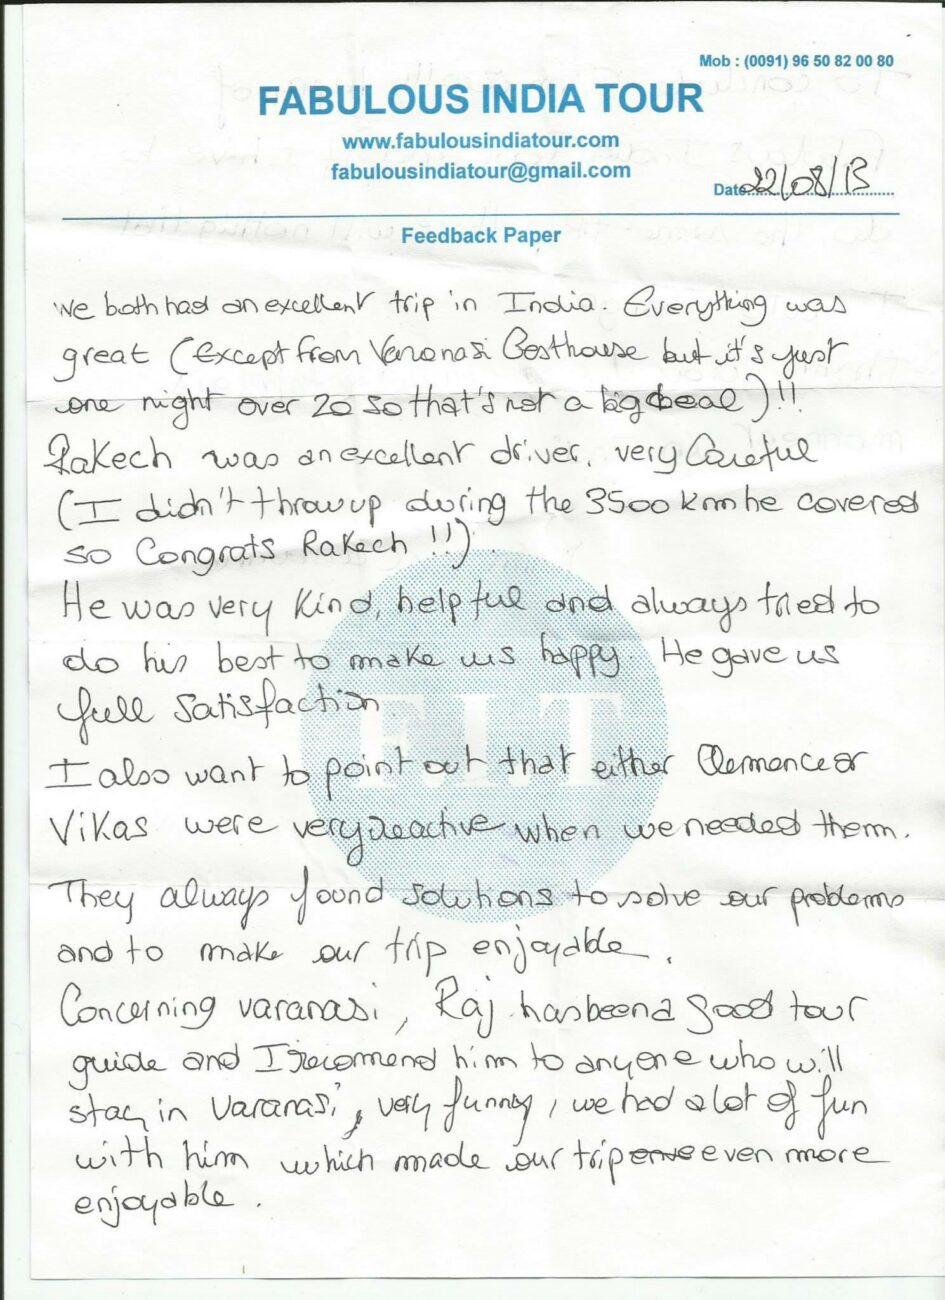 Mob : (0091) 96 50 82 00 80
FABULOUS INDIA TOUR
www.fabulousindiatour.com
fabulousindiatour@gmail.com
Date 22/08/13
Feedback Paper
We both had an excellent trip in India. Everything was
great (Except from Varanasi Gesthouse but it's just
one night over 20 so that's not a big deal)!!
Rakech was an excellent driver, very Careful
(I didn't throw up during the 3500 km he covered
so Congrats Rakech !!).
He was very Kind, helpful and always tried to
do his best to make us happy. He gave us
full satisfaction.
I also want to point out that either Clemence or
Vikas were very reactive when we needed them.
They always found solutions to solve our problems
and to make our trip enjoyable.
Concerning varanasi, Raj has been a good tour
guide and I recomend him to anyone who will
stay in Varanasi, very funny, we had a lot of fun
with him which made our trip even more
enjoyable.
F.I.T